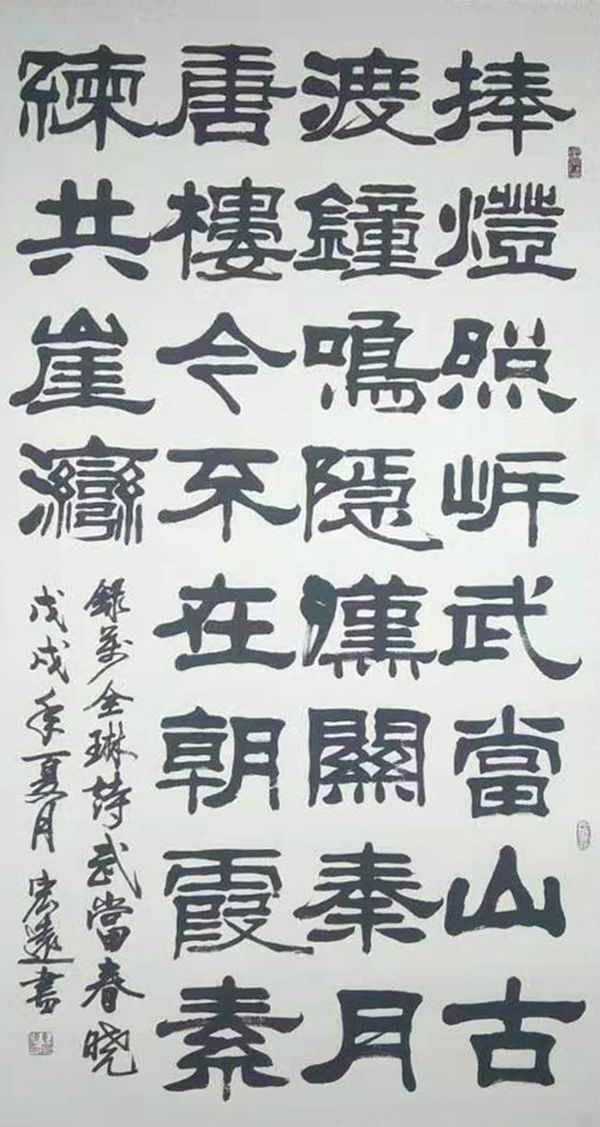 捧燈照岍武當山古
渡鐘鳴隱漢關秦月
唐樓今不在朝霞素
練共崖灣
錄萬全琳詩武當春晓
戊戌年夏月宏遠書